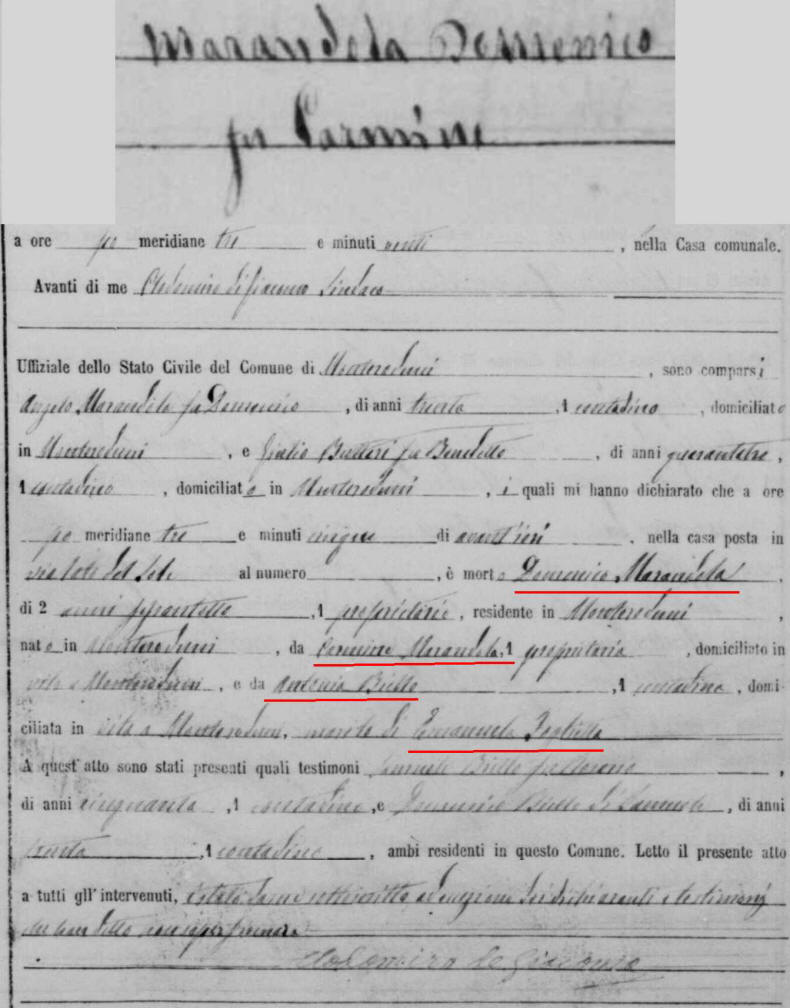 Marandola Domenico
fu Carmine
a ore po meridiane tre e minuti venti , nella Casa comunale.
Avanti di me Sindaco
Uffiziale dello Stato Civile del Comune di Monteroduni , sono comparsi
Angelo Marandola fu Domenico , di anni trenta , 1 contadino , domiciliato
in Monteroduni , e Giulio Butteri fu Benedetto , di anni quarantatre ,
1 contadino , domiciliato in Monteroduni , i quali mi hanno dichiarato che a ore
po meridiane tre e minuti cinque di avant'ieri , nella casa posta in
via al numero , è morto Domenico Marandola ,
di 2 anni , 1 proprietario , residente in Monteroduni ,
nato in Monteroduni , da Carmine Marandola, 1 proprietario , domiciliato in
vita a Monteroduni , e da Antonia Biello , 1 contadina , domi-
ciliata in vita a Monteroduni, marito di Emanuela
A quest'atto sono stati presenti quali testimoni Samuele Biello fu ,
di anni cinquanta , 1 contadino , e Domenico Biello di Samuele , di anni
trenta , 1 contadino , ambi residenti in questo Comune. Letto il presente atto
a tutti gl'intervenuti, è stato da me sottoscritto ad eccezione dei dichiaranti e testimoni
che han detto non saper firmare